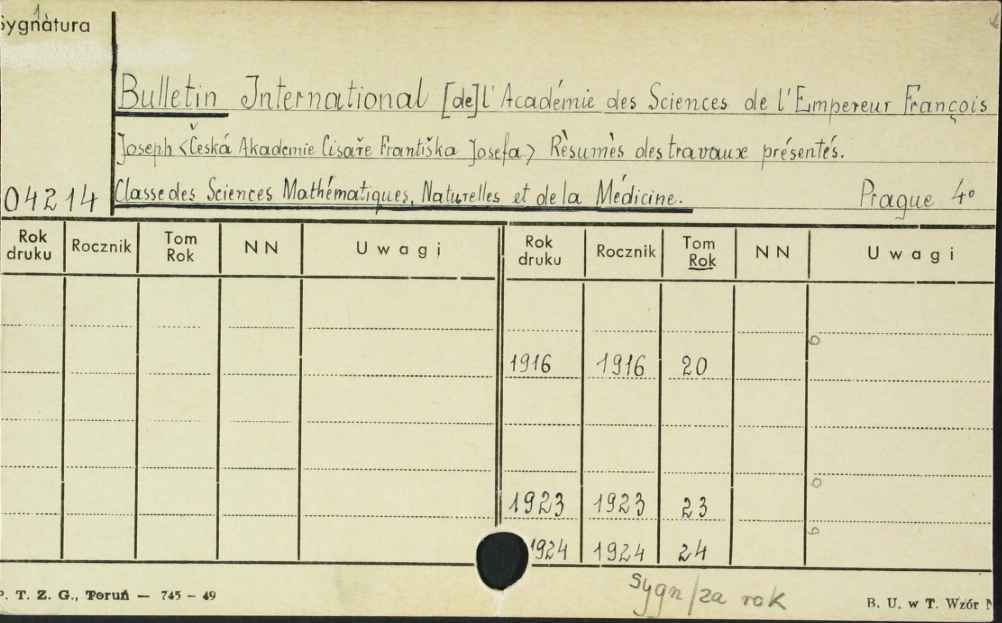 Sygnatura
Bulletin International [de] l'Académie des Sciences de l'Empereur François
Joseph <Česká Akademie Cisaře Františka Josefa> Rèsumès des travaux présentés.
04214 Classe des Sciences Mathématiques, Naturelles et de la Médicine. Prague 4°
Rok druku Rocznik Tom Rok NN Uwagi Rok druku Rocznik Tom Rok NN Uwagi
1916 1916 20
1923 1923 23
1924 1924 24
Sygn/za rok
P. T. Z. G., Toruń — 745 – 49 B. U. w T. Wzór